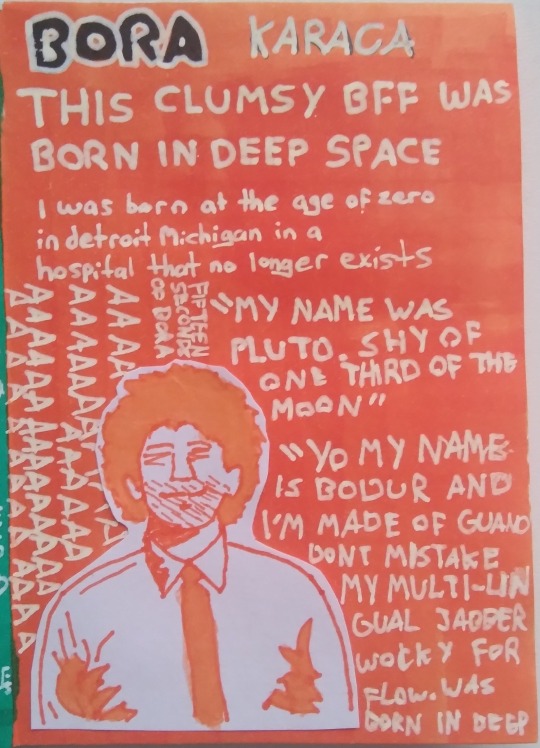 BORA KARACA
THIS CLUMSY BFF WAS
BORN IN DEEP SPACE
I was born at the age of zero
in detroit Michigan in a
hospital that no longer exists
FIFTEEN
SECONDS
OF BORA
"MY NAME WAS
PLUTO. SHY OF
ONE THIRD OF THE
MOON"
"YO MY NAME
IS BOUUR AND
I'M MADE OF GUANO
DONT MISTAKE
MY MULTI-LIN
GUAL JABBER
WOCKY FOR
FLOW. WAS
BORN IN DEEP